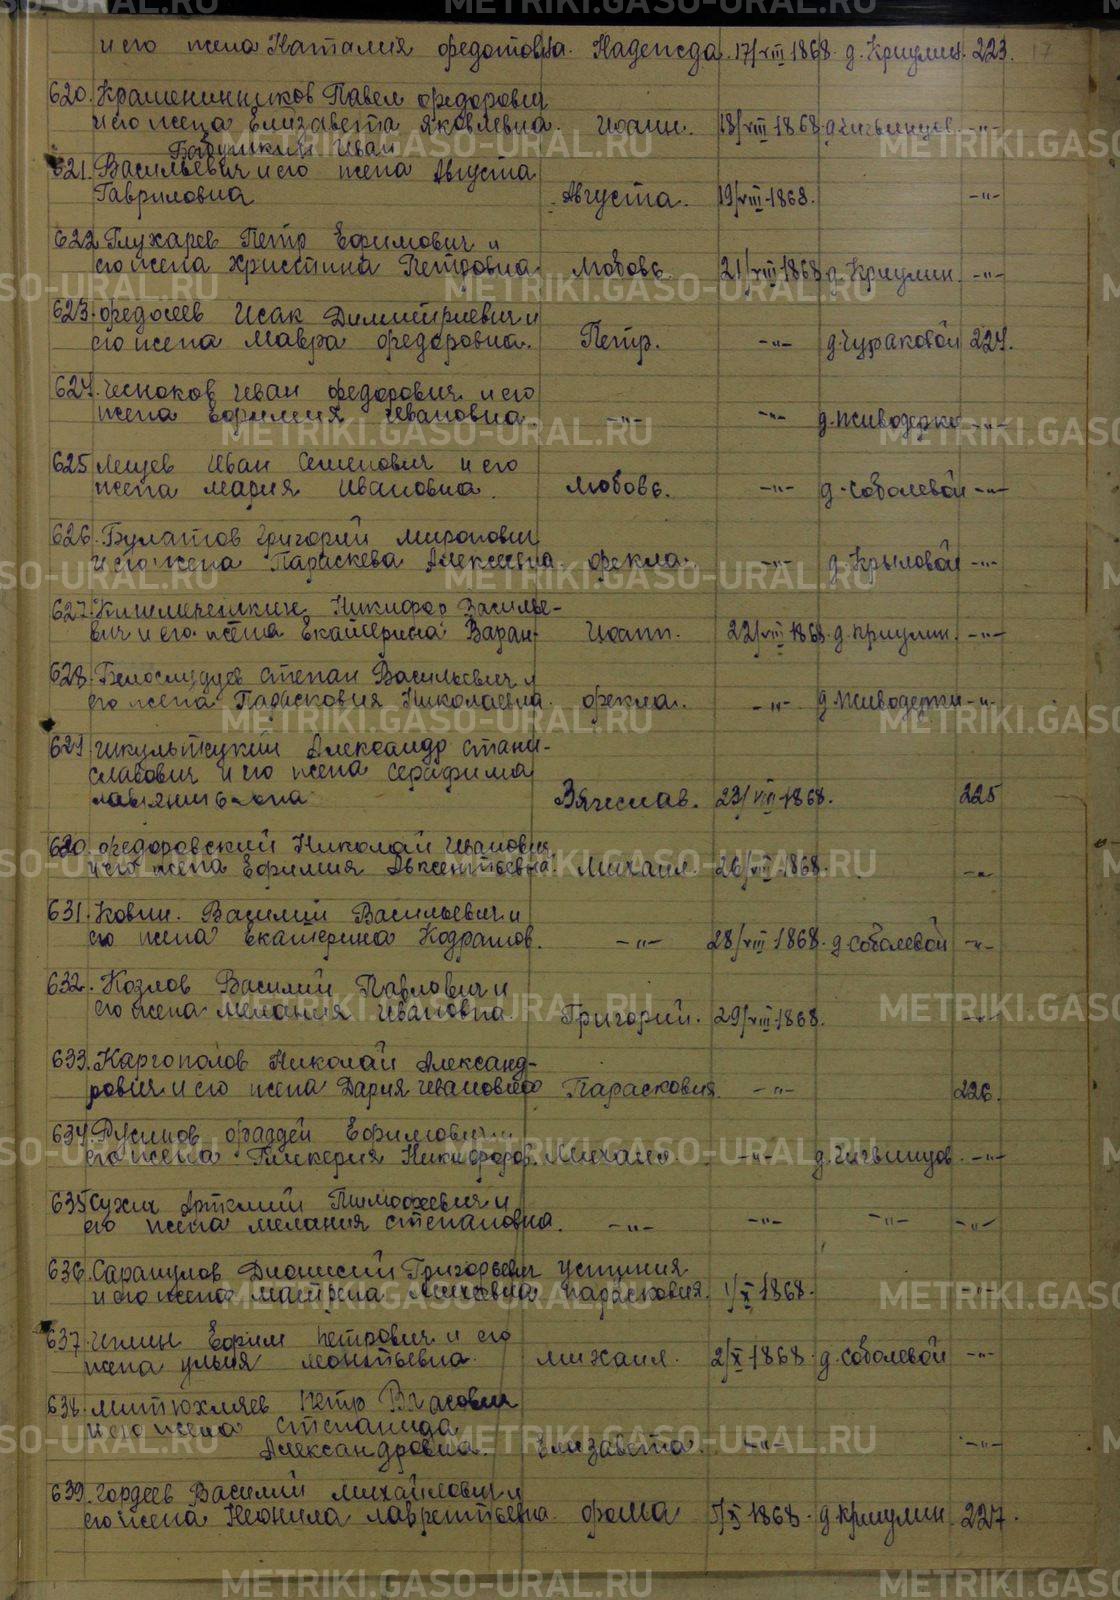 и его жена Наталия Федотовна. Надежда. 17/VIII 1868. д. Криулин. 223. 17
620. Крашенинников Павел Федорович
и его жена Елизавета Яковлевна. Иоанн. 18/VIII 1868. д. Чигвинцев. -"-
Бабушкин Иван
621. Васильевич и его жена Августа
Гавриловна Августа. 19/VIII-1868. -"-
622. Глухарев Петр Ефимович и
его жена Христина Петровна Любовь. 21/VIII-1868 д. Криулин. -"-
623. Федосеев Исак Димитриевич и
его жена Мавра Федоровна. Петр. -"- д. Чураковой 224.
624. Чесноков Иван Федорович и его
жена Ефимия Ивановна -"- -"- д. Живодерка -"-
625. Лещев Иван Семенович и его
жена Мария Ивановна. Любовь. -"- д. Соболевой -"-
626. Булатов Григорий Миронович
и его жена Параскева Алексеевна. Фекла. -"- д. Крыловой -"-
627. Никифор Василье-
вич и его жена Екатерина Варан- Иоанн. 22/VIII-1868. д. Криулин. -"-
628. Белослудцев Степан Васильевич и
его жена Парасковия Николаевна. Фекла. -"- д. Живодерки -"-
629. Александр Стани-
славович и его жена Серафима
Вячеслав. 23/VIII-1868. 225
630. Федоровский Николай Иванович
и его жена Ефимия Авксентьевна. Михаил. 26/VIII-1868. -"-
631. Ковин. Василий Васильевич и
его жена Екатерина Кодратов. -"- 28/VIII-1868. д. Соболевой -"-
632. Козлов Василий Павлович и
его жена Мелания Ивановна Григорий. 29/VIII-1868. -"-
633. Каргополов Николай Александ-
рович и его жена Дария Ивановна Парасковия. -"- 226.
634. Русинов Фаддей Ефимович и
его жена Гликерия Никифоров. Михаил. -"- д. Чигвинцов. -"-
635. Сухих Артемий Тимофеевич и
его жена Мелания Степановна. -"- -"- -"- -"-
636. Сарапулов Дионисий Григорьевич Устиния
и его жена Матрена Парасковия. 1/X 1868. -"-
637. Ефим Петрович и его
жена Ульия Леонтьевна. Михаил. 2/X-1868. д. Соболевой -"-
638. Митюхляев Петр Власович
и его жена Степанида
Александровна. Елизавета. -"- -"-
639. Гордеев Василий Михайлович и
его жена Неонила Лаврентьевна. Фома 5/X-1868. д. Криулин. 227.
METRIKI.GASO-URAL.RU